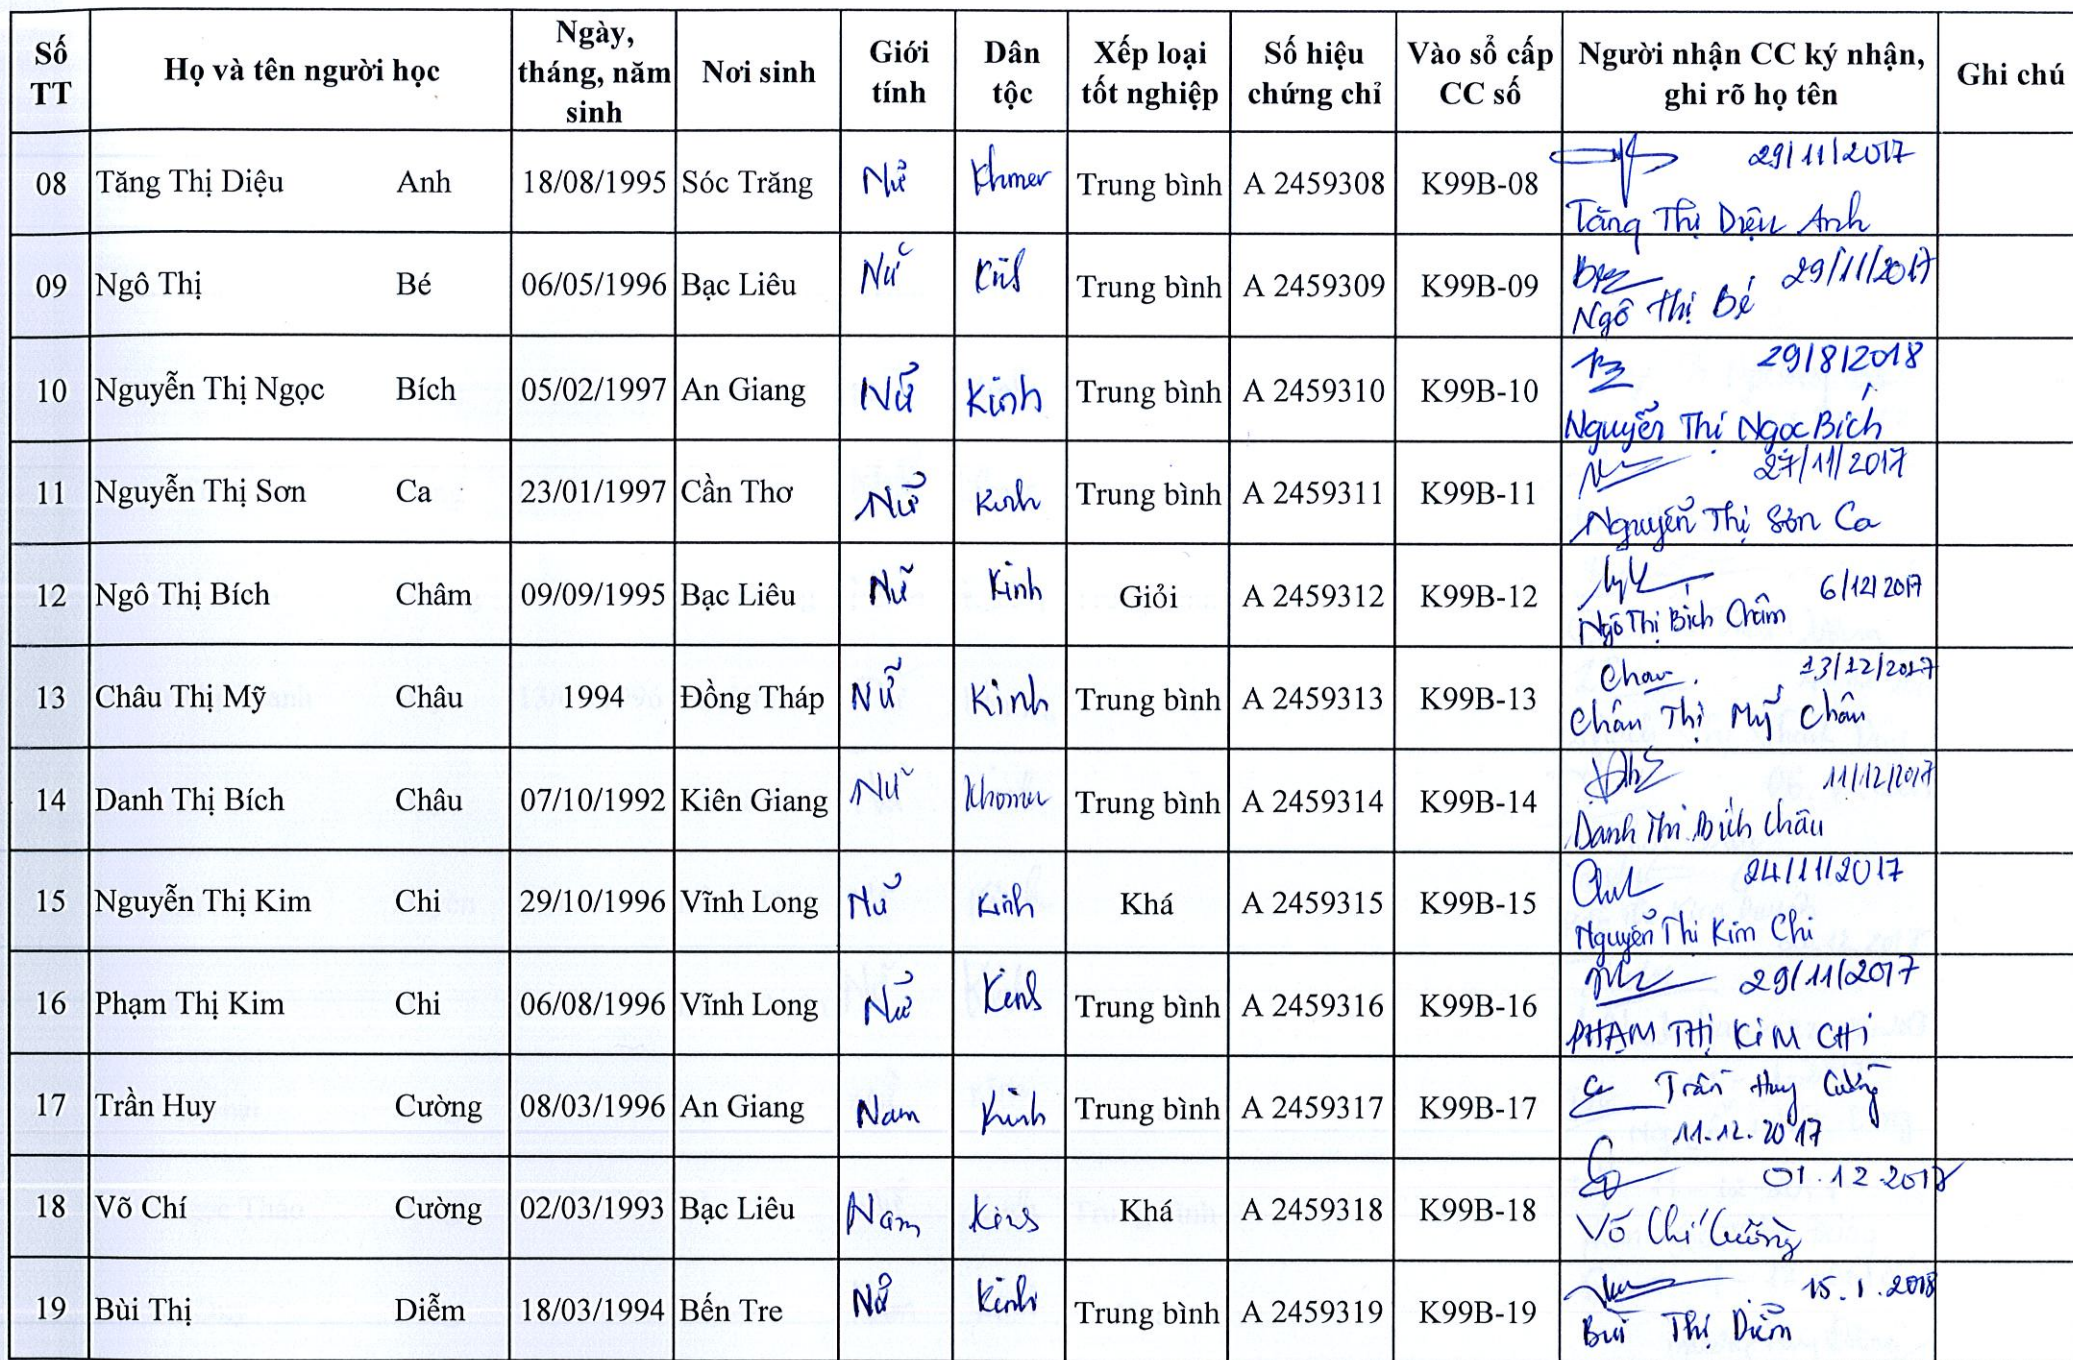 Số TT	Họ và tên người học	Ngày, tháng, năm sinh	Nơi sinh	Giới tính	Dân tộc	Xếp loại tốt nghiệp	Số hiệu chứng chỉ	Vào sổ cấp CC số	Người nhận CC ký nhận, ghi rõ họ tên	Ghi chú
08 Tăng Thị Diệu Anh 18/08/1995 Sóc Trăng Nữ Khmer Trung bình A 2459308 K99B-08 29/11/2017
Tăng Thị Diệu Anh
09 Ngô Thị Bé 06/05/1996 Bạc Liêu Nữ Kinh Trung bình A 2459309 K99B-09 29/11/2017
Ngô Thị Bé
10 Nguyễn Thị Ngọc Bích 05/02/1997 An Giang Nữ Kinh Trung bình A 2459310 K99B-10 29/8/2018
Nguyễn Thị Ngọc Bích
11 Nguyễn Thị Sơn Ca 23/01/1997 Cần Thơ Nữ Kinh Trung bình A 2459311 K99B-11 27/11/2017
Nguyễn Thị Sơn Ca
12 Ngô Thị Bích Châm 09/09/1995 Bạc Liêu Nữ Kinh Giỏi A 2459312 K99B-12 6/12/2017
Ngô Thị Bích Châm
13 Châu Thị Mỹ Châu 1994 Đồng Tháp Nữ Kinh Trung bình A 2459313 K99B-13 Chau 13/12/2017
Châu Thị Mỹ Châu
14 Danh Thị Bích Châu 07/10/1992 Kiên Giang Nữ Khomer Trung bình A 2459314 K99B-14 11/12/2017
Danh Thị Bích Châu
15 Nguyễn Thị Kim Chi 29/10/1996 Vĩnh Long Nữ Kinh Khá A 2459315 K99B-15 24/11/2017
Nguyễn Thị Kim Chi
16 Phạm Thị Kim Chi 06/08/1996 Vĩnh Long Nữ Kinh Trung bình A 2459316 K99B-16 29/11/2017
PHẠM THỊ KIM CHI
17 Trần Huy Cường 08/03/1996 An Giang Nam Kinh Trung bình A 2459317 K99B-17 Trần Huy Cường
11.12.2017
18 Võ Chí Cường 02/03/1993 Bạc Liêu Nam Kinh Khá A 2459318 K99B-18 01.12.2017
Võ Chí Cường
19 Bùi Thị Diễm 18/03/1994 Bến Tre Nữ Kinh Trung bình A 2459319 K99B-19 15.1.2018
Bùi Thị Diễm